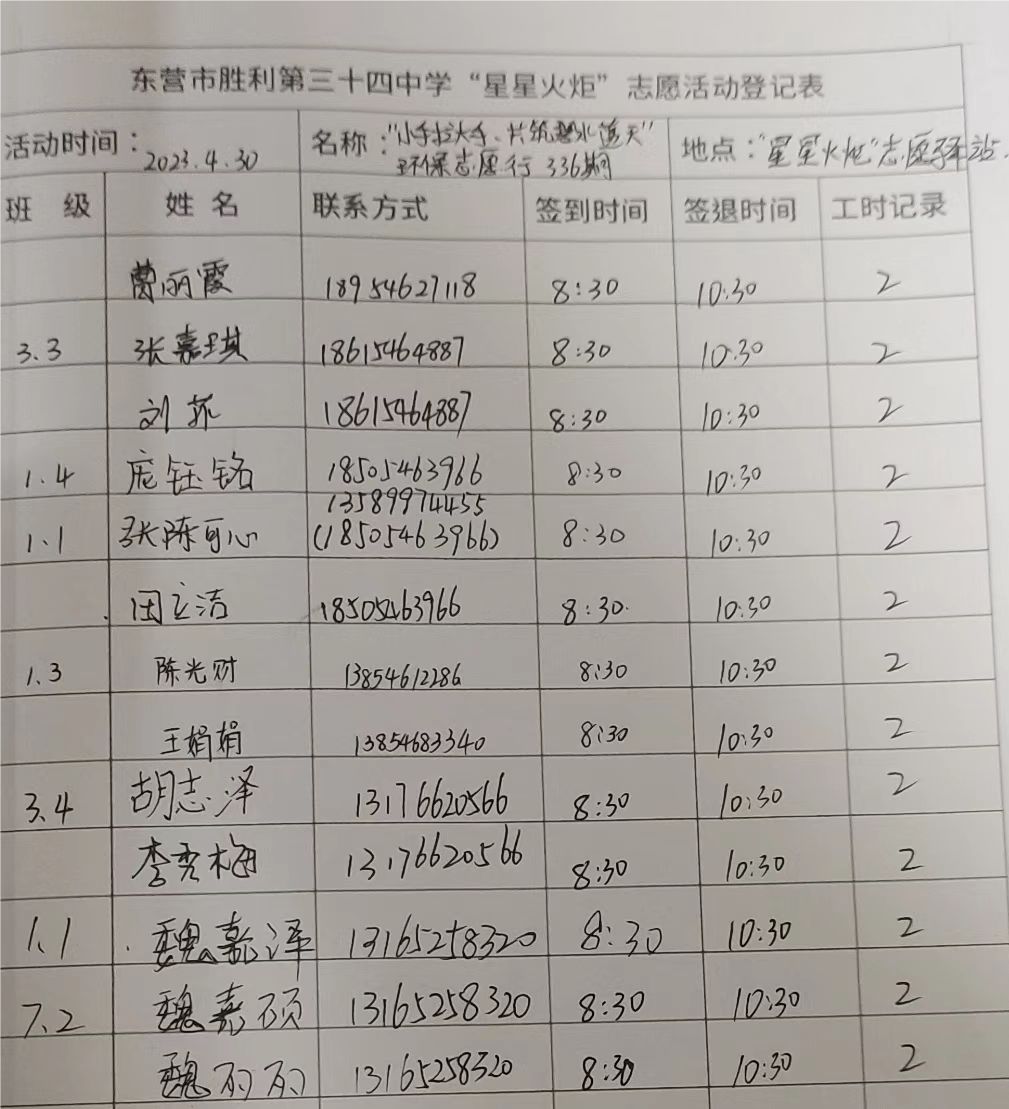 东营市胜利第三十四中学“星星火炬”志愿活动登记表
活动时间：2023.4.30 名称：“小手拉大手·共筑碧水蓝天”环保志愿行 336期 地点：“星星火炬”志愿驿站
班 级 姓 名 联系方式 签到时间 签退时间 工时记录
丽霞 18954627118 8:30 10:30 2
3.3 张嘉琪 18615464887 8:30 10:30 2
刘 18615464887 8:30 10:30 2
1.4 庞钰铭 18505463966 8:30 10:30 2
13589974455
1.1 张陈可心 (18505463966) 8:30 10:30 2
田立洁 18505463966 8:30 10:30 2
1.3 陈光财 13854612286 8:30 10:30 2
王娟娟 13854683340 8:30 10:30 2
3.4 胡志泽 13176620566 8:30 10:30 2
李秀梅 13176620566 8:30 10:30 2
1.1 魏嘉泽 13165258320 8:30 10:30 2
7.2 魏嘉硕 13165258320 8:30 10:30 2
魏丽丽 13165258320 8:30 10:30 2